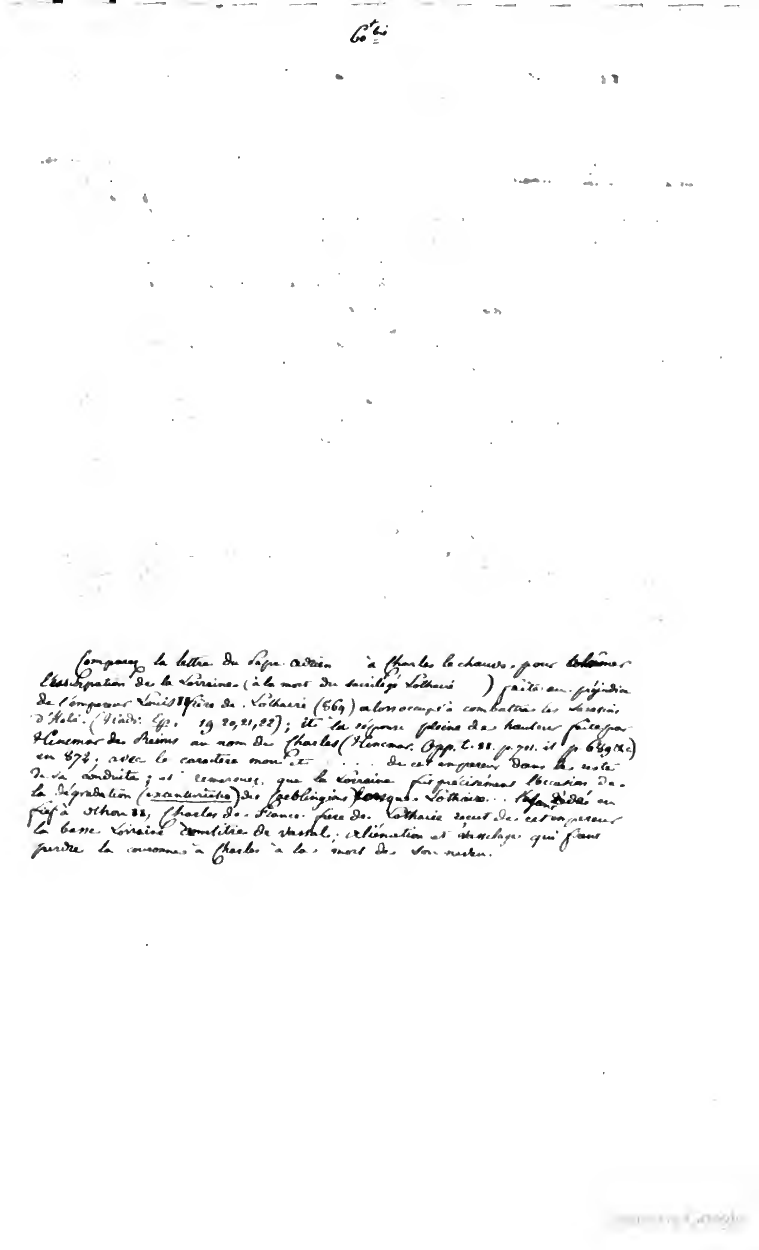 60 bis
Comparez la lettre du Pape Adrien à Charles le chauve, pour blâmer
l'usurpation de la Lorraine (à la mort du sacrilège Lothaire ) faite au préjudice
de l'empereur Louis II frère de Lothaire (869) alors occupé à combattre les Sarasins
d'Italie (Hadr. Ep. 19 20, 21, 22); et la réponse pleine de hauteur faite par
Hincmar de Reims au nom de Charles (Hincmar. Opp. t. II. p. 701. et p 689 &c)
en 872; avec le caractère de cet empereur dans le reste
de sa conduite; et remarquez que la Lorraine fut précisément l'occasion de
la dégradation des lorsque Lothaire en
fief à Othon II, Charles de France frère de Lothaire reçut de cet empereur
la basse Lorraine à titre de vassal; aliénation et vasselage qui font
perdre la couronne à Charles à la mort de son neveu.